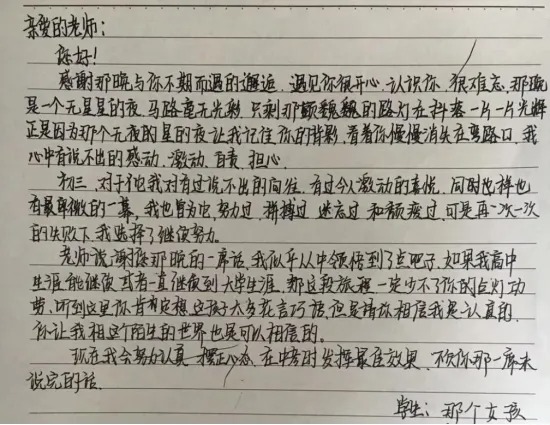 亲爱的老师:
您好!
感谢那晚与你不期而遇的邂逅,遇见你很开心,认识你,很难忘,那晚
是一个无星星的夜,马路毫无光彩,只剩那颤巍巍的路灯在抖落一片一片光辉
正是因为那个无夜的星的夜让我记住你的背影,看着你慢慢消失在弯路口,我
心中有说不出的感动,激动,自责,担心。
初三,对于他我对有过说不出的向往,有过令人激动的喜悦,同时也拌也
有最卑微的一幕,我也曾为它努力过 拼搏过 迷忘过 和颓废过,可是再一次一次
的失败下,我选择了继续努力。
老师说谢您那晚的一席话,我似乎从中领悟到了点吧子,如果我高中
生涯能继续或者一直继续到大学生涯,那这段旅程一定少不了你的点灯功
劳,听到这里你肯定想这孩子太多花言巧语,但是请你相信我是认真的,
你让我相这个陌生的世界也是可以相信的。
现在我会努力认真 摆正心态,在中考时发挥最佳效果,不负你那一席未
说完的话。
学生:那个女孩